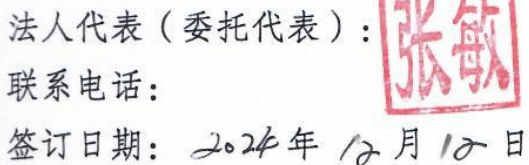 法人代表（委托代表）：张敏
联系电话：
签订日期：2024年12月12日